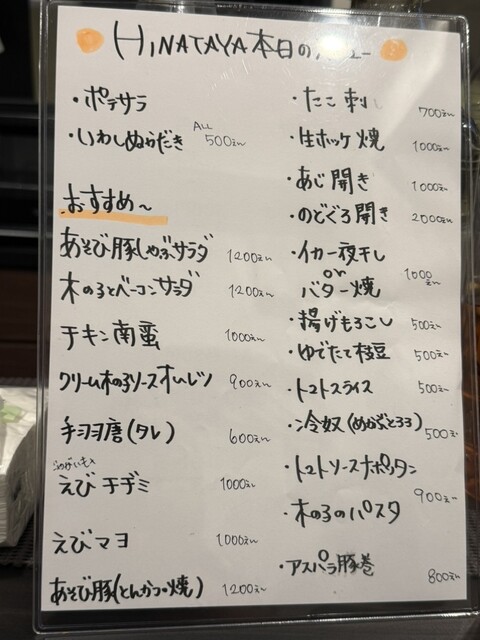 HINATAYA 本日のメニュー
・ポテサラ
・いわしぬかだき ALL 500えん
おすすめ〜
あそび豚しゃぶサラダ 1200えん
木の子とベーコンサラダ 1200えん
チキン南蛮 1000えん
クリーム木の子ソースオムレツ 900えん
手羽唐(タレ) 600えん
えびチヂミ 1000えん
えびマヨ 1000えん
あそび豚(とんかつ・焼) 1200えん
・たこ刺し 700えん
・生ホッケ焼 1000えん
・あじ開き 1000えん
・のどぐろ開き 2000えん
・イカ一夜干し
or
バター焼 1000えん
・揚げもろこし 500えん
・ゆでたて枝豆 500えん
・トマトスライス 500えん
・冷奴(めかぶとろろ) 500えん
・トマトソースナポリタン
・木の子のパスタ 900えん
・アスパラ豚巻 800えん